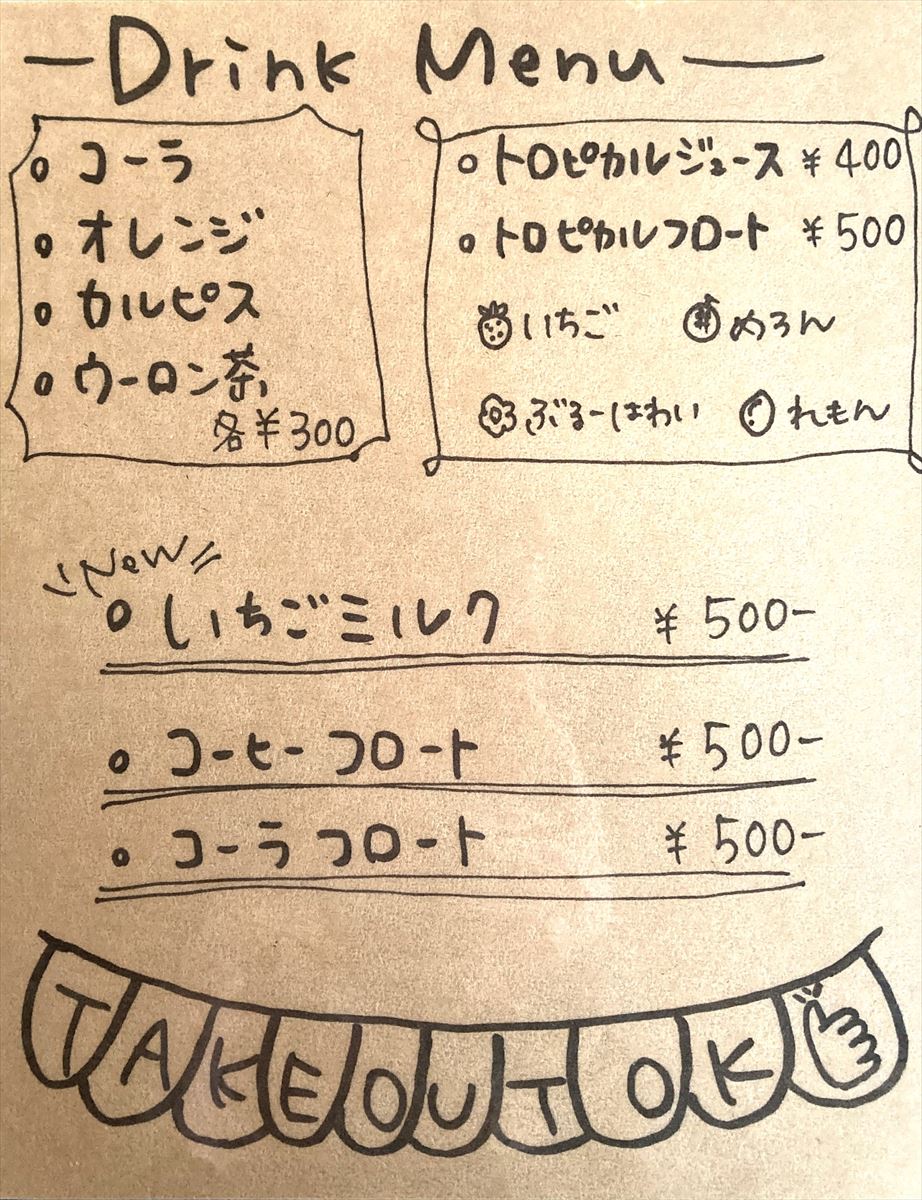 Drink Menu
コーラ
オレンジ
カルピス
ウーロン茶
各¥300
トロピカルジュース ¥400
トロピカルフロート ¥500
いちご めろん
ぶるーはわい れもん
New
いちごミルク ¥500-
コーヒーフロート ¥500-
コーラフロート ¥500-
TAKEOUTOK